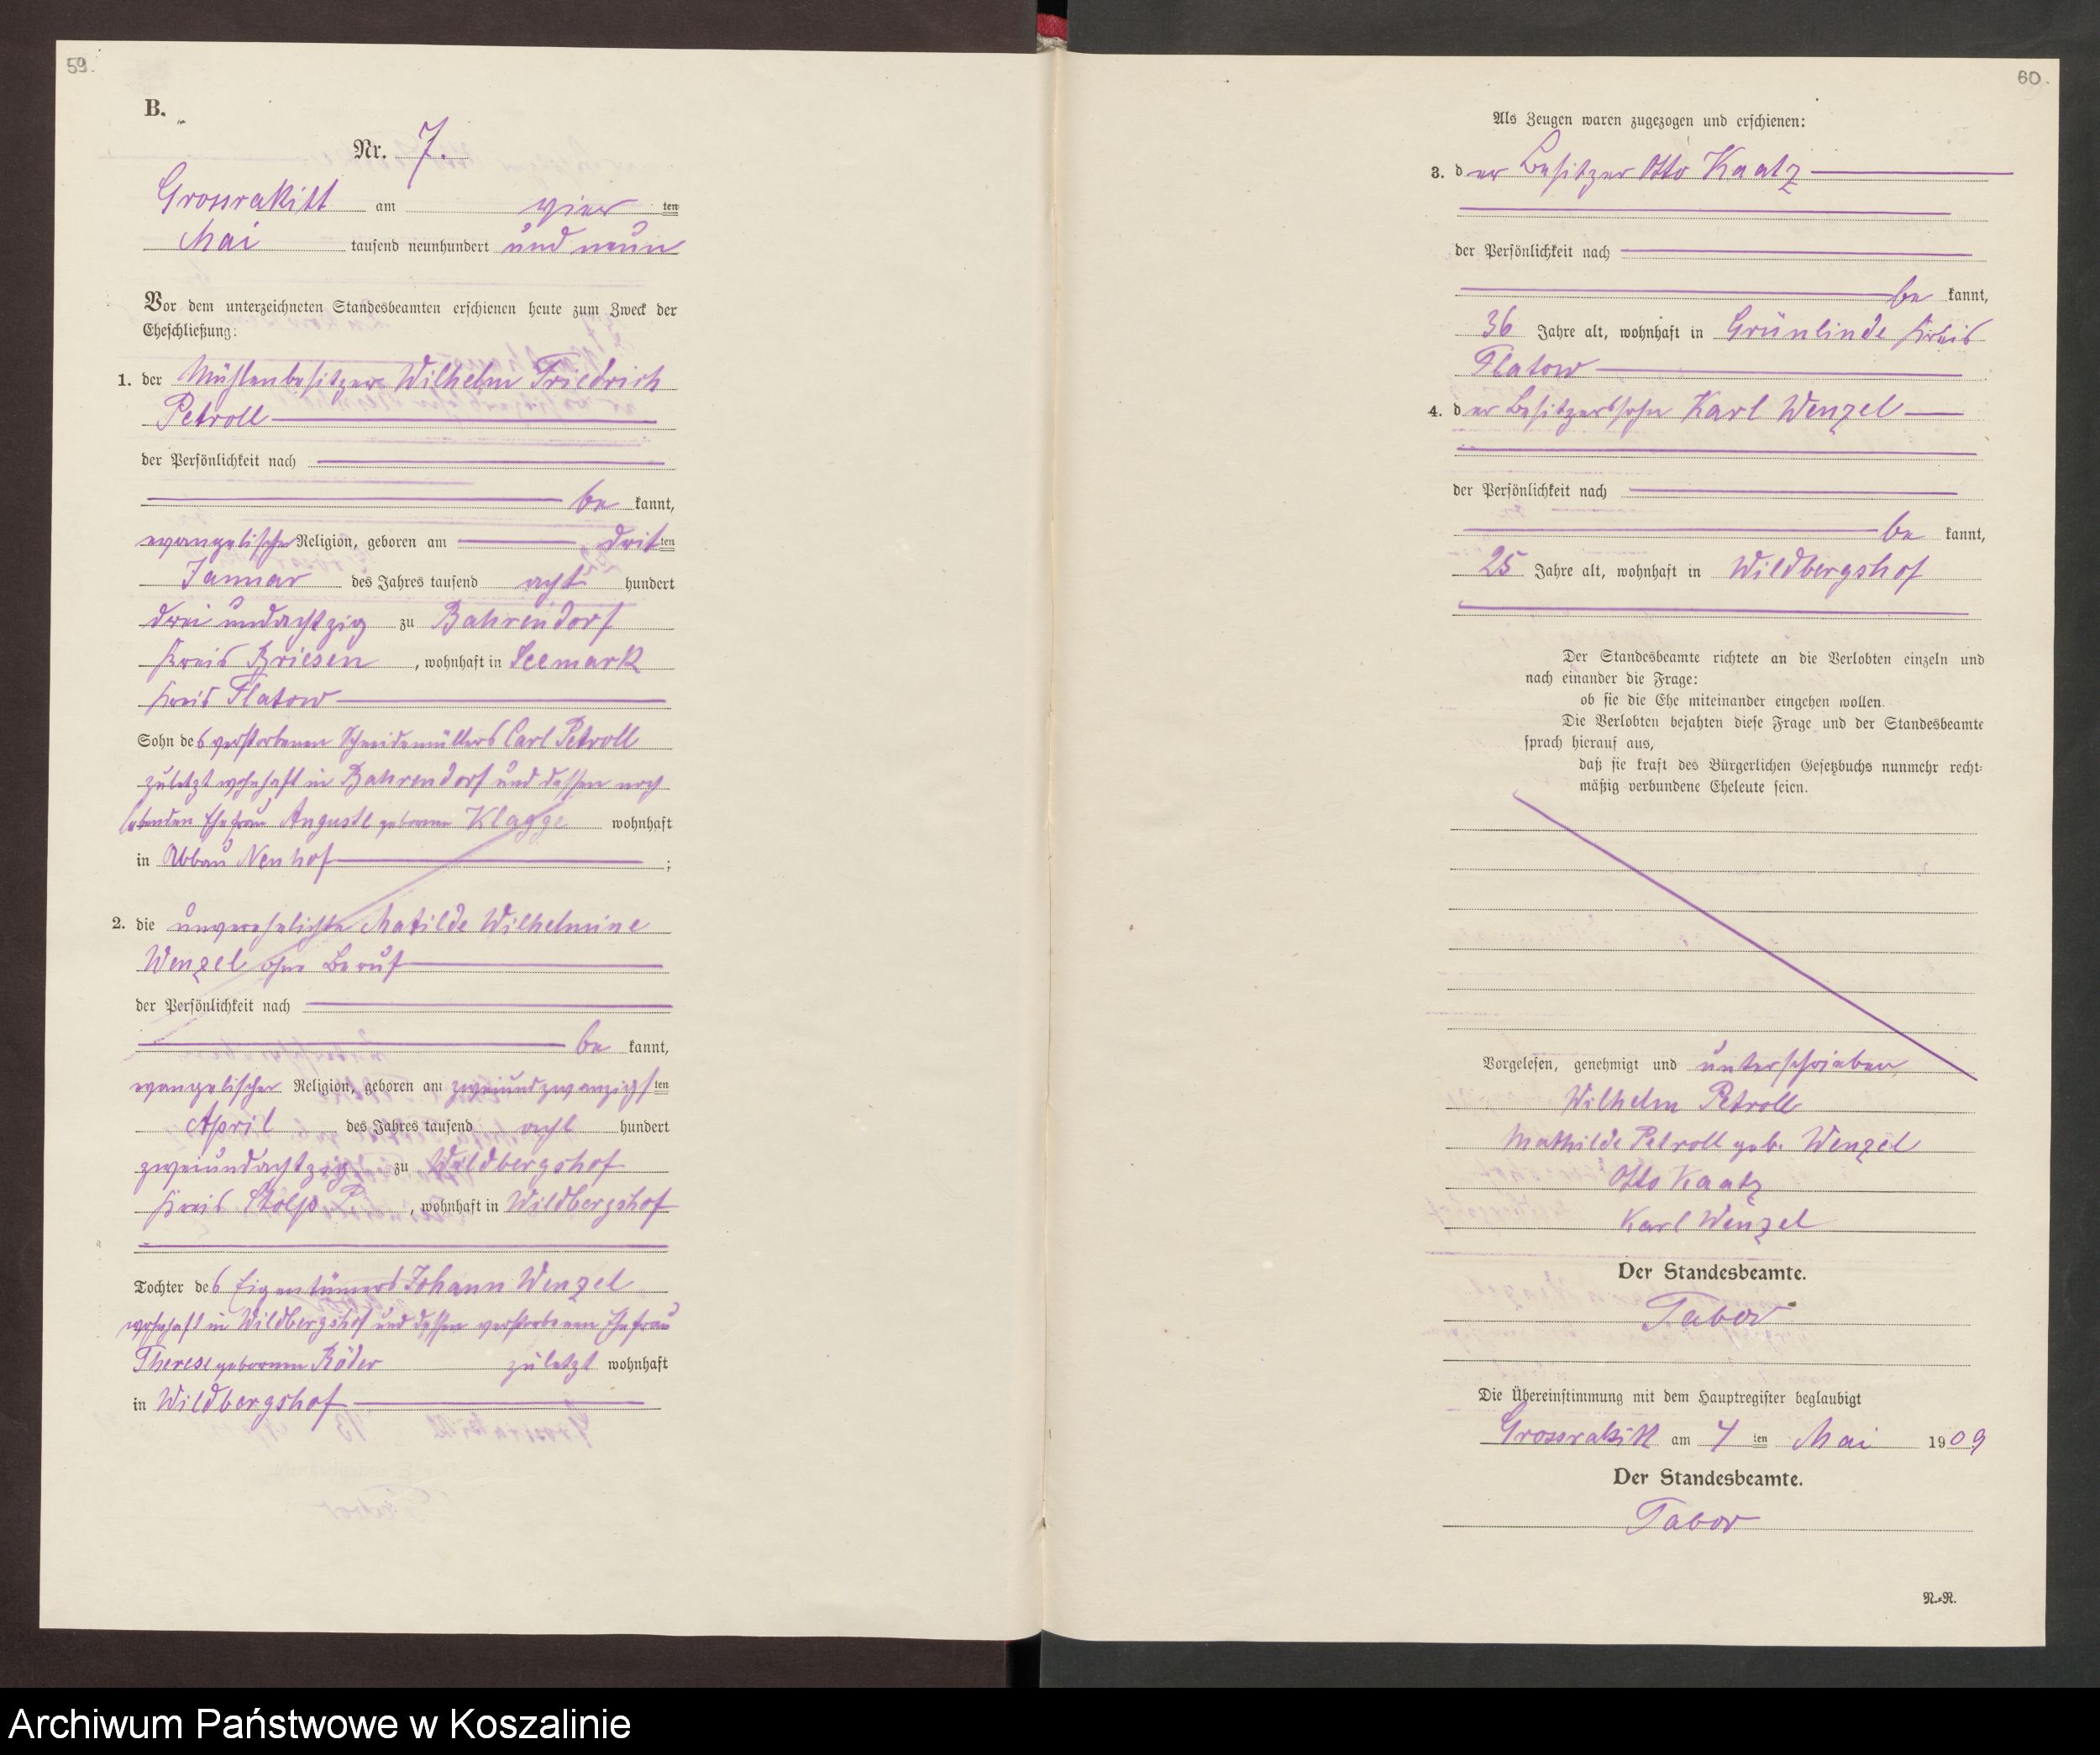 59.
B.
Nr. 7.
Grossrakitt am vier ten
Mai tausend neunhundert und neun
Vor dem unterzeichneten Standesbeamten erschienen heute zum Zweck der
Eheschließung:
1. der Mühlenbesitzer Wilhelm Friedrich
Petroll
der Persönlichkeit nach
be kannt,
evangelischer Religion, geboren am drit ten
Januar des Jahres tausend acht hundert
drei undachtzig zu Bahrendorf
Kreis Briesen, wohnhaft in Seemark
Kreis Flatow
Sohn des verstorbenen Schneidemüllers Carl Petroll
zuletzt wohnhaft in Bahrendorf und dessen noch
lebenden Ehefrau Auguste geborene Klagge wohnhaft
in Abbau Neuhof ;
2. die unverehelichte Matilde Wilhelmine
Wenzel ohne Beruf
der Persönlichkeit nach
be kannt,
evangelischer Religion, geboren am zweiundzwanzigs ten
April des Jahres tausend acht hundert
zweiundachtzig zu Wildbergshof
Kreis Stolp, wohnhaft in Wildbergshof
Tochter des Eigentümers Johann Wenzel
wohnhaft in Wildbergshof und dessen verstorbenen Ehefrau
Therese geborenen Röder zuletzt wohnhaft
in Wildbergshof
60.
Als Zeugen waren zugezogen und erschienen:
3. der Besitzer Otto Kaatz
der Persönlichkeit nach
be kannt,
36 Jahre alt, wohnhaft in Grünlinde Kreis
Flatow
4. der Besitzerssohn Karl Wenzel
der Persönlichkeit nach
be kannt,
25 Jahre alt, wohnhaft in Wildbergshof
Der Standesbeamte richtete an die Verlobten einzeln und
nach einander die Frage:
ob sie die Ehe miteinander eingehen wollen.
Die Verlobten bejahten diese Frage und der Standesbeamte
sprach hierauf aus,
daß sie kraft des Bürgerlichen Gesetzbuchs nunmehr recht-
mäßig verbundene Eheleute seien.
Vorgelesen, genehmigt und unterschrieben
Wilhelm Petroll
Mathilde Petroll geb. Wenzel
Otto Kaatz
Karl Wenzel
Der Standesbeamte.
Tabor
Die Übereinstimmung mit dem Hauptregister beglaubigt
Grossrakitt am 4 ten Mai 1909
Der Standesbeamte.
Tabor
N.-N.
Archiwum Państwowe w Koszalinie